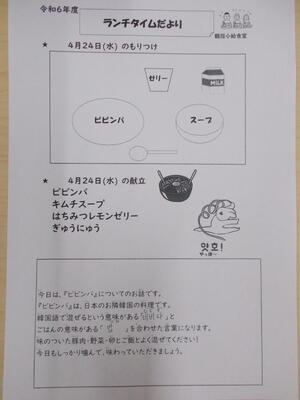 令和6年度
ランチタイムだより
給食室
★ 4月24日(水) のもりつけ
ゼリー
MILK
ビビンバ
スープ
★ 4月24日(水) の献立
ビビンバ
キムチスープ
はちみつレモンゼリー
ぎゅうにゅう
얏호!
やっほー
今日は、『ビビンバ』についてのお話です。
『ビビンバ』は、日本のお隣韓国の料理です。
韓国語で混ぜるという意味がある「비비다」と
ごはんの意味がある「밥」を合わせた言葉になります。
味のついた豚肉・野菜・卵とご飯とよく混ぜてください!
今日もしっかり噛んで、味わっていただきましょう。